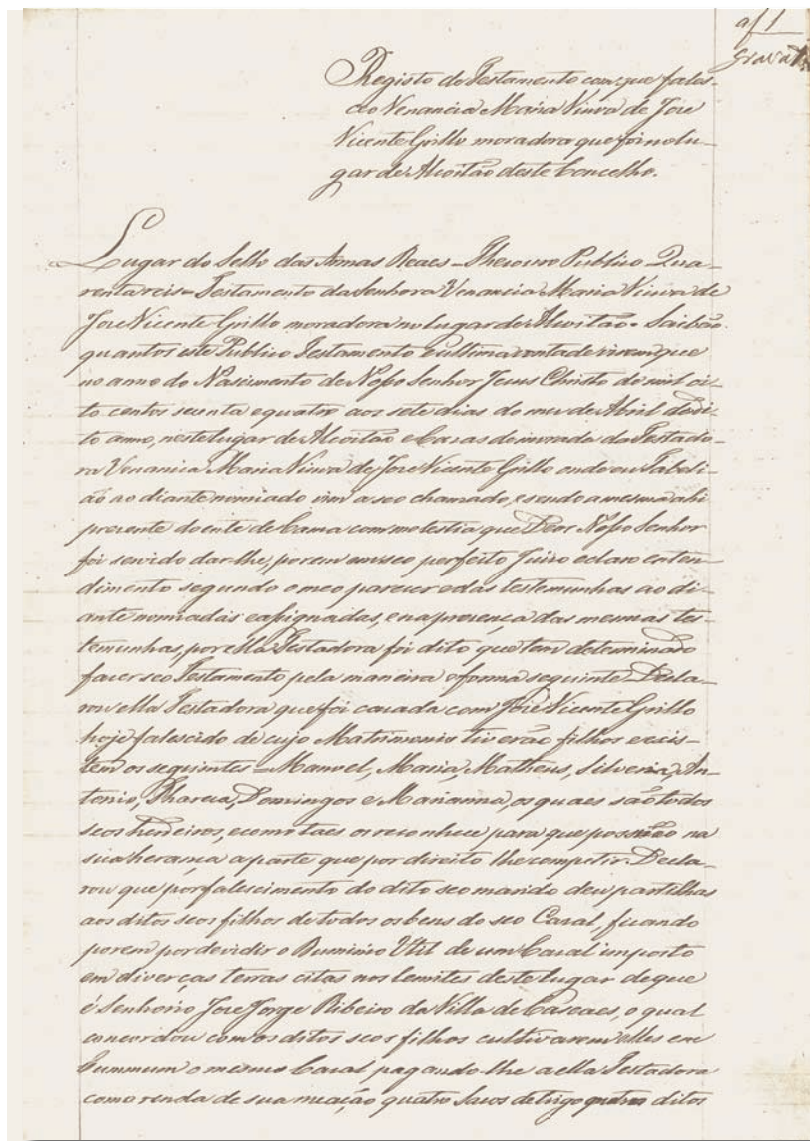 af 1
Gravato
Registo do Testamento com que fales-
ceo Venancia Maria Viuva de Jose
Vicente Grillo moradora que foi no lu-
gar de Alcoitão deste Concelho.
Lugar do Sello das Armas Reaes = Thesouro Publico Qua-
renta reis = Testamento da Senhora Venancia Maria Viuva de
Jose Vicente Grillo moradora no lugar de Alcoitão = Saibão
quantos este Publico Testamento e ultima vontade virem que
no anno do Nascimento de Nosso Senhor Jesus Christo de mil oi-
to centos secenta e quatro aos sete dias do mez de Abril do di-
to anno, neste lugar de Alcoitão e Cazas de morada da Testado-
ra Venancia Maria Viuva de Jose Vicente Grillo onde eu Tabeli-
ão ao diante nomiado vim a seo chamado, e sendo a mesma ahi
prezente doente de Cama com molestia que Deos Nosso Senhor
foi servido dar-lhe, porem em seo perfeito Juizo e claro enten-
dimento segundo o meo parecer e das testemunhas ao di-
ante nomiadas e assignadas, e na prezença das mesmas tes-
temunhas, por ella Testadora foi dito que tem determinado
fazer seo Testamento pela maneira e forma seguinte. Decla-
rou ella Testadora que foi cazada com Jose Vicente Grillo
hoje falescido de cujo Matrimonio tiverão filhos e exis-
tem os seguintes = Manoel, Maria, Matheus, Silveria, An-
tonio, Tharcia, Domingos e Marianna, os quaes são todos
seos herdeiros, e como taes os reconhece para que possão na
sua herança a parte que por direito lhe competir. Decla-
rou que por falescimento do dito seo marido deu partilhas
aos ditos seos filhos de todos os bens do seo Cazal, ficando
porem por devidir o Duminio Util de um Cazal imposto
em diverças terras citas nos lemites deste lugar de que
é Senhorio Jose Jorge Ribeiro da Villa de Cascaes, o qual
concordou com os ditos seos filhos cultivarem elles em
Cummum o mesmo Cazal, pagando-lhe a ella Testadora
como renda de sua meação quatro Sacos de trigo ditos